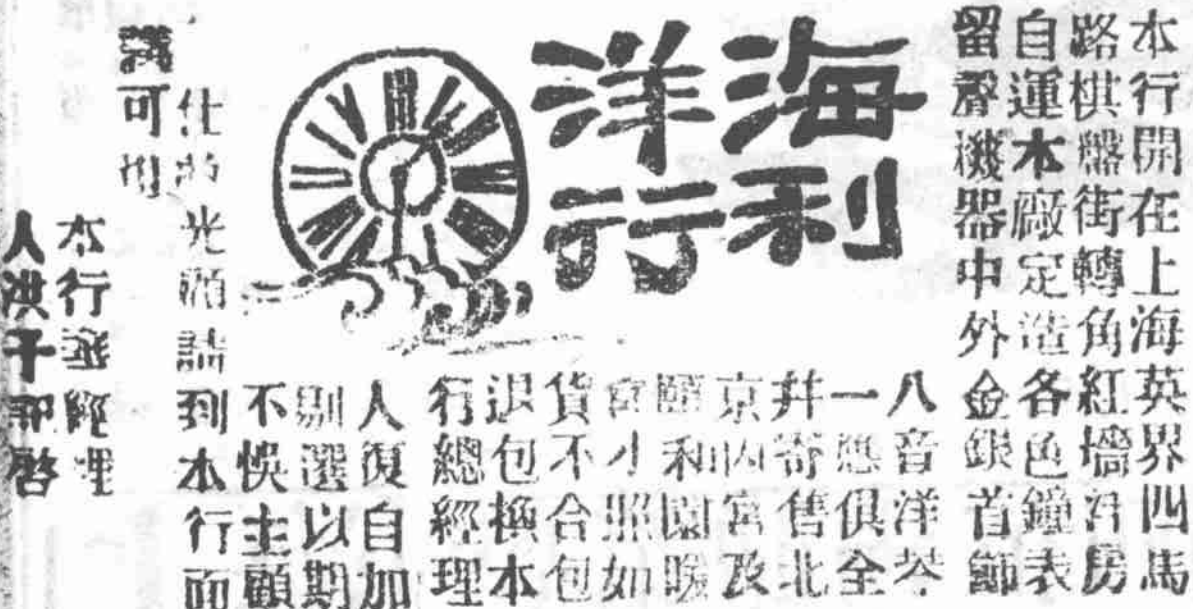 海利
洋行
本行開在上海英界四馬
路棋盤街轉角紅墻洋房
自運本廠定造各色鐘表
留聲機器中外金銀首飾
八音洋琴
一應俱全
井寄售北
京內宮及
頤和園晚
宮小照如
貨不合包
退包換本
行總經理
人復自加
剔選以期
不悞主顧
仕商光顧請到本行面
議可也
本行總經理
人洪千記啓